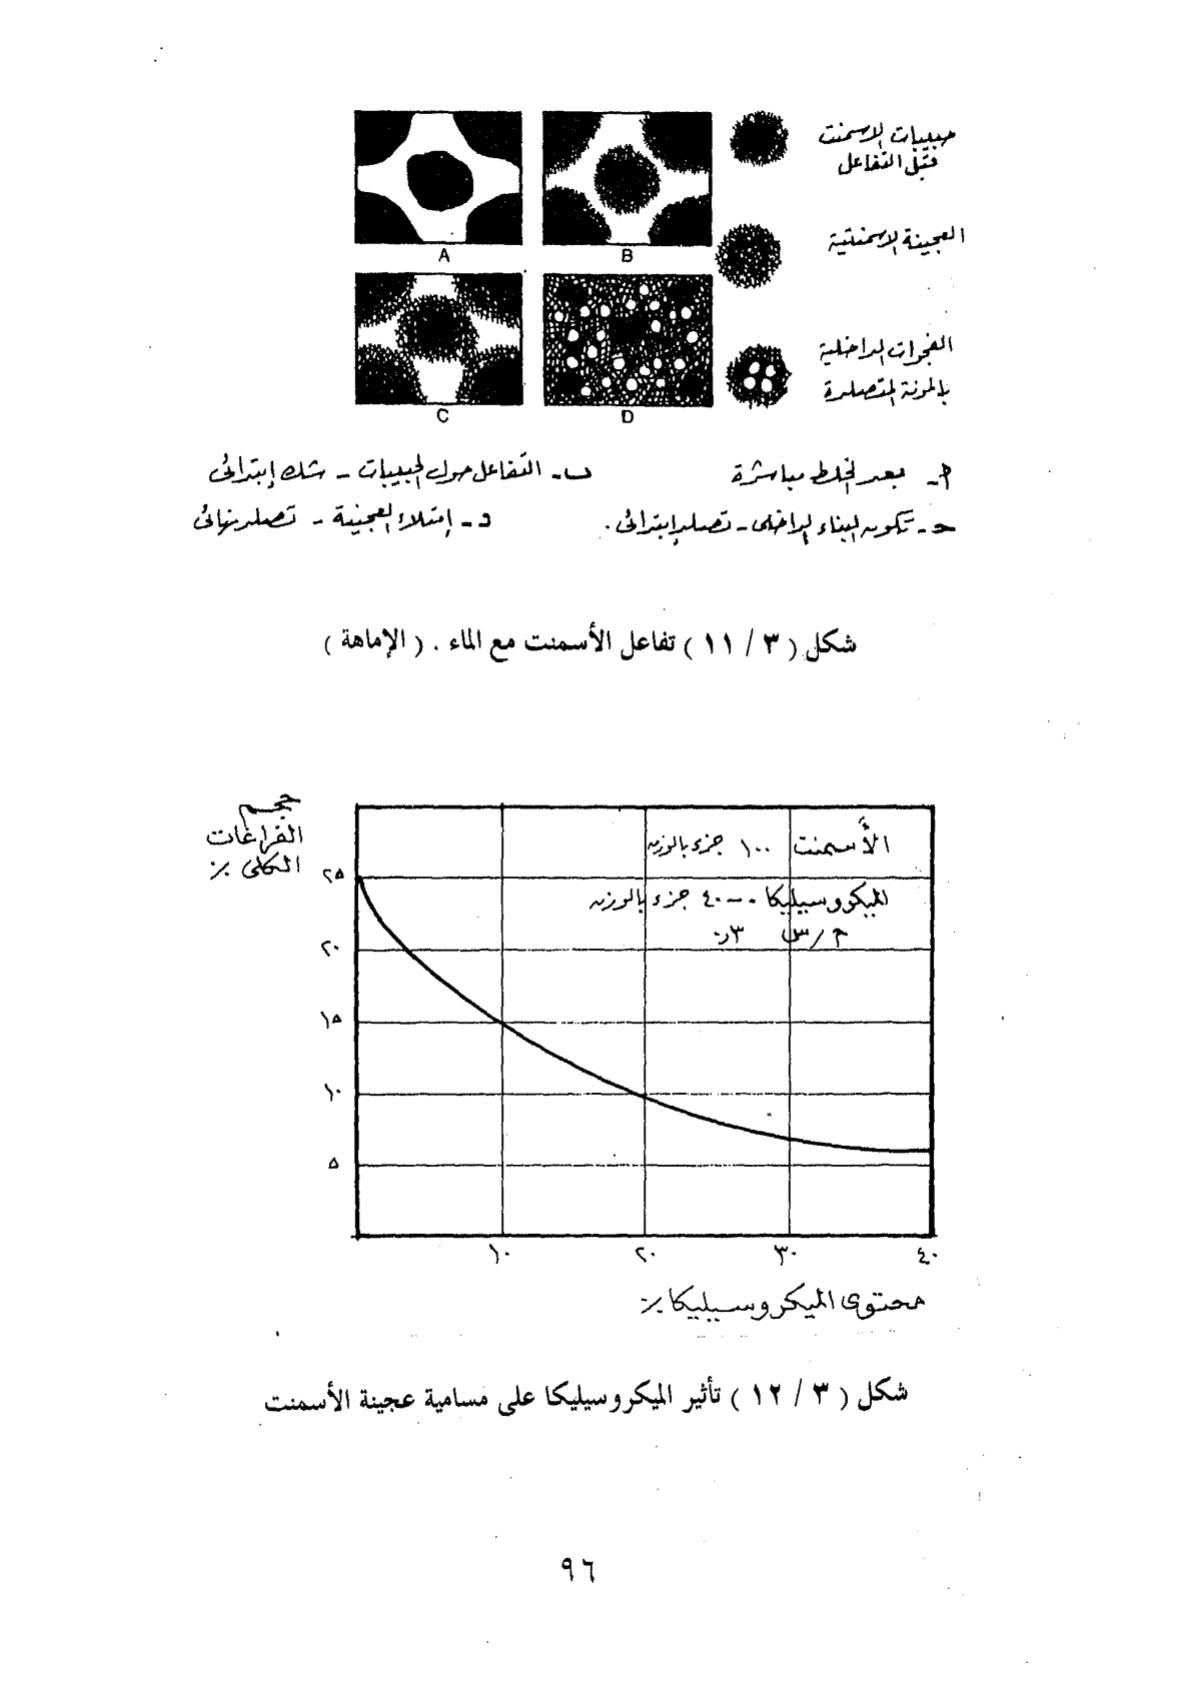 حبيبات الاسمنت
قبل التفاعل
A
B
العجينة الاسمنتية
الفجوات الداخلية
بالمونة المتصلدة
C
D
أ- بعد الخلط مباشرة
ب- التفاعل حول الحبيبات - شك إبتدائى
حـ- تكون البناء الداخلى - تصلد إبتدائى.
د- إمتلاء العجينة - تصلد نهائى
شكل ( ٣ / ١١ ) تفاعل الأسمنت مع الماء . ( الإماهة )
حجم
الفراغات
الكلى ٪
الأسمنت ١٠٠ جزء بالوزن
الميكروسيليكا ٠-٤٠ جزء بالوزن
م/س ٣ر٠
٢٥
٢٠
١٥
١٠
٥
١٠ ٢٠ ٣٠ ٤٠
محتوى الميكروسيليكا ٪
شكل ( ٣ / ١٢ ) تأثير الميكروسيليكا على مسامية عجينة الأسمنت
٩٦